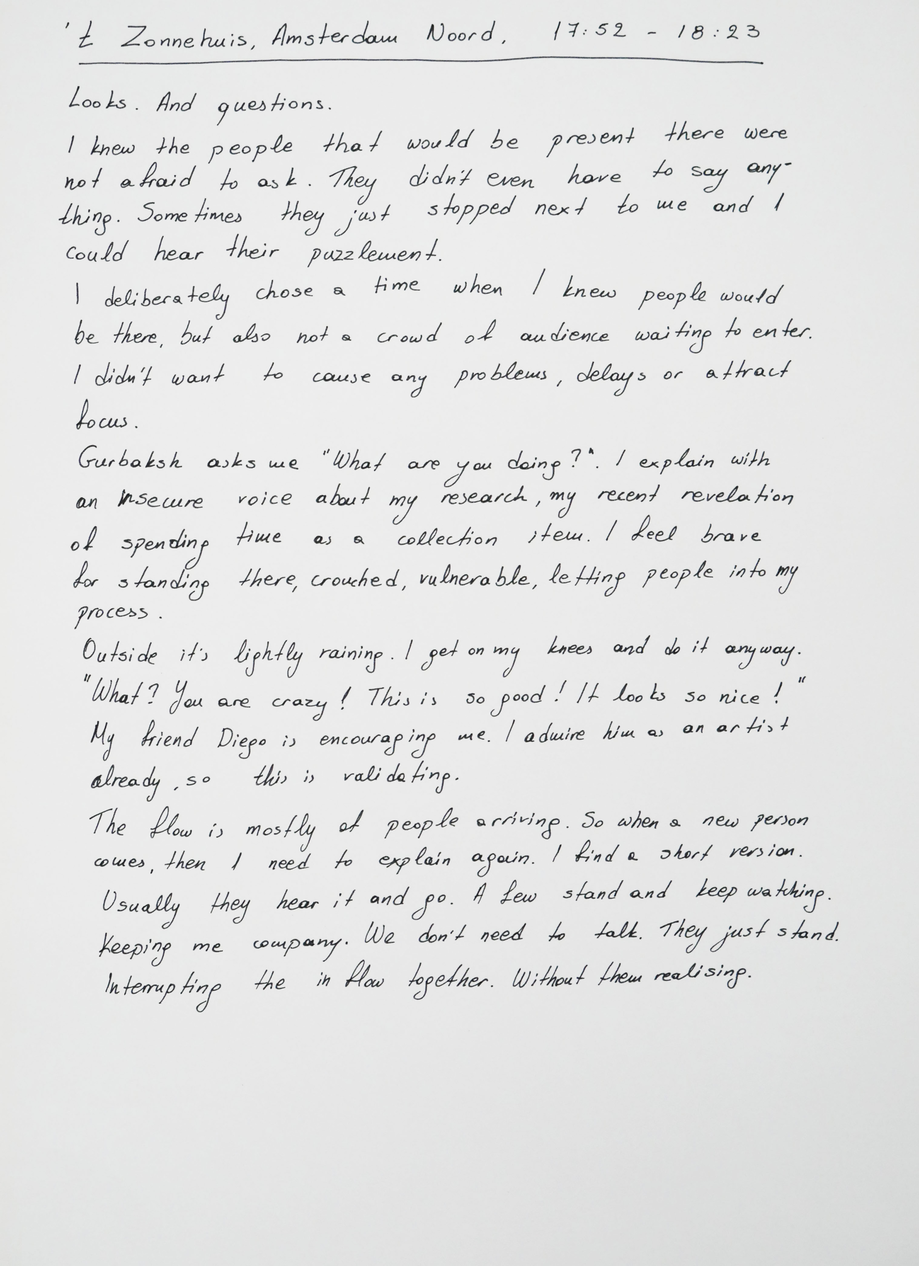 't Zonnehuis, Amsterdam Noord. 17:52 - 18:23
Looks. And questions.
I knew the people that would be present there were
not afraid to ask. They didn't even have to say any-
thing. Sometimes they just stopped next to me and I
could hear their puzzlement.
I deliberately chose a time when I knew people would
be there, but also not a crowd of audience waiting to enter.
I didn't want to cause any problems, delays or attract
focus.
Gurbaksh asks me "What are you doing?". I explain with
an insecure voice about my research, my recent revelation
of spending time as a collection item. I feel brave
for standing there, crouched, vulnerable, letting people into my
process.
Outside it's lightly raining. I get on my knees and do it anyway.
"What? You are crazy! This is so good! It looks so nice!"
My friend Diego is encouraging me. I admire him as an artist
already, so this is validating.
The flow is mostly of people arriving. So when a new person
comes, then I need to explain again. I find a short version.
Usually they hear it and go. A few stand and keep watching.
Keeping me company. We don't need to talk. They just stand.
Interrupting the in flow together. Without them realising.